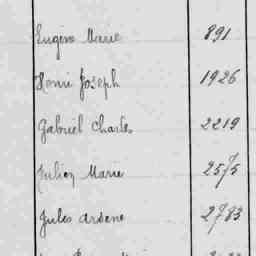 Eugène Marie 891
Henri Joseph 1926
Gabriel Charles 2219
Julien Marie 2575
Jules Arsène 2783